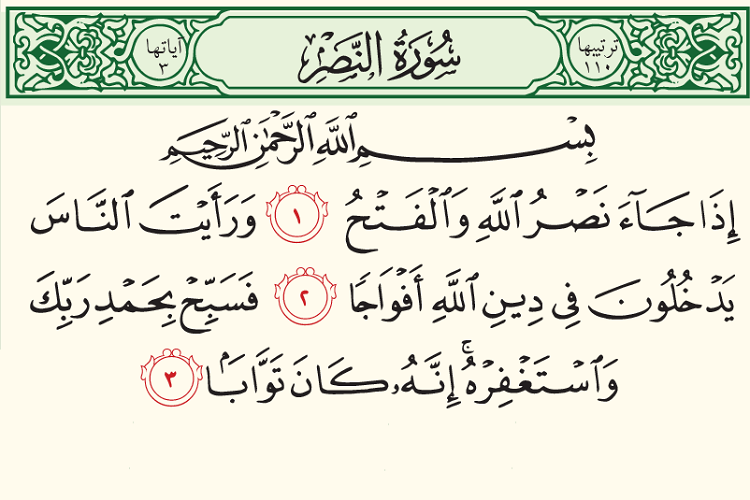 ترتيبها ١١٠ سُورَةُ النَّصْرِ آياتها ٣
بِسْمِ ٱللَّهِ ٱلرَّحْمَٰنِ ٱلرَّحِيمِ
إِذَا جَآءَ نَصْرُ ٱللَّهِ وَٱلْفَتْحُ ١ وَرَأَيْتَ ٱلنَّاسَ
يَدْخُلُونَ فِى دِينِ ٱللَّهِ أَفْوَاجًا ٢ فَسَبِّحْ بِحَمْدِ رَبِّكَ
وَٱسْتَغْفِرْهُ ۚ إِنَّهُۥ كَانَ تَوَّابًۢا ٣